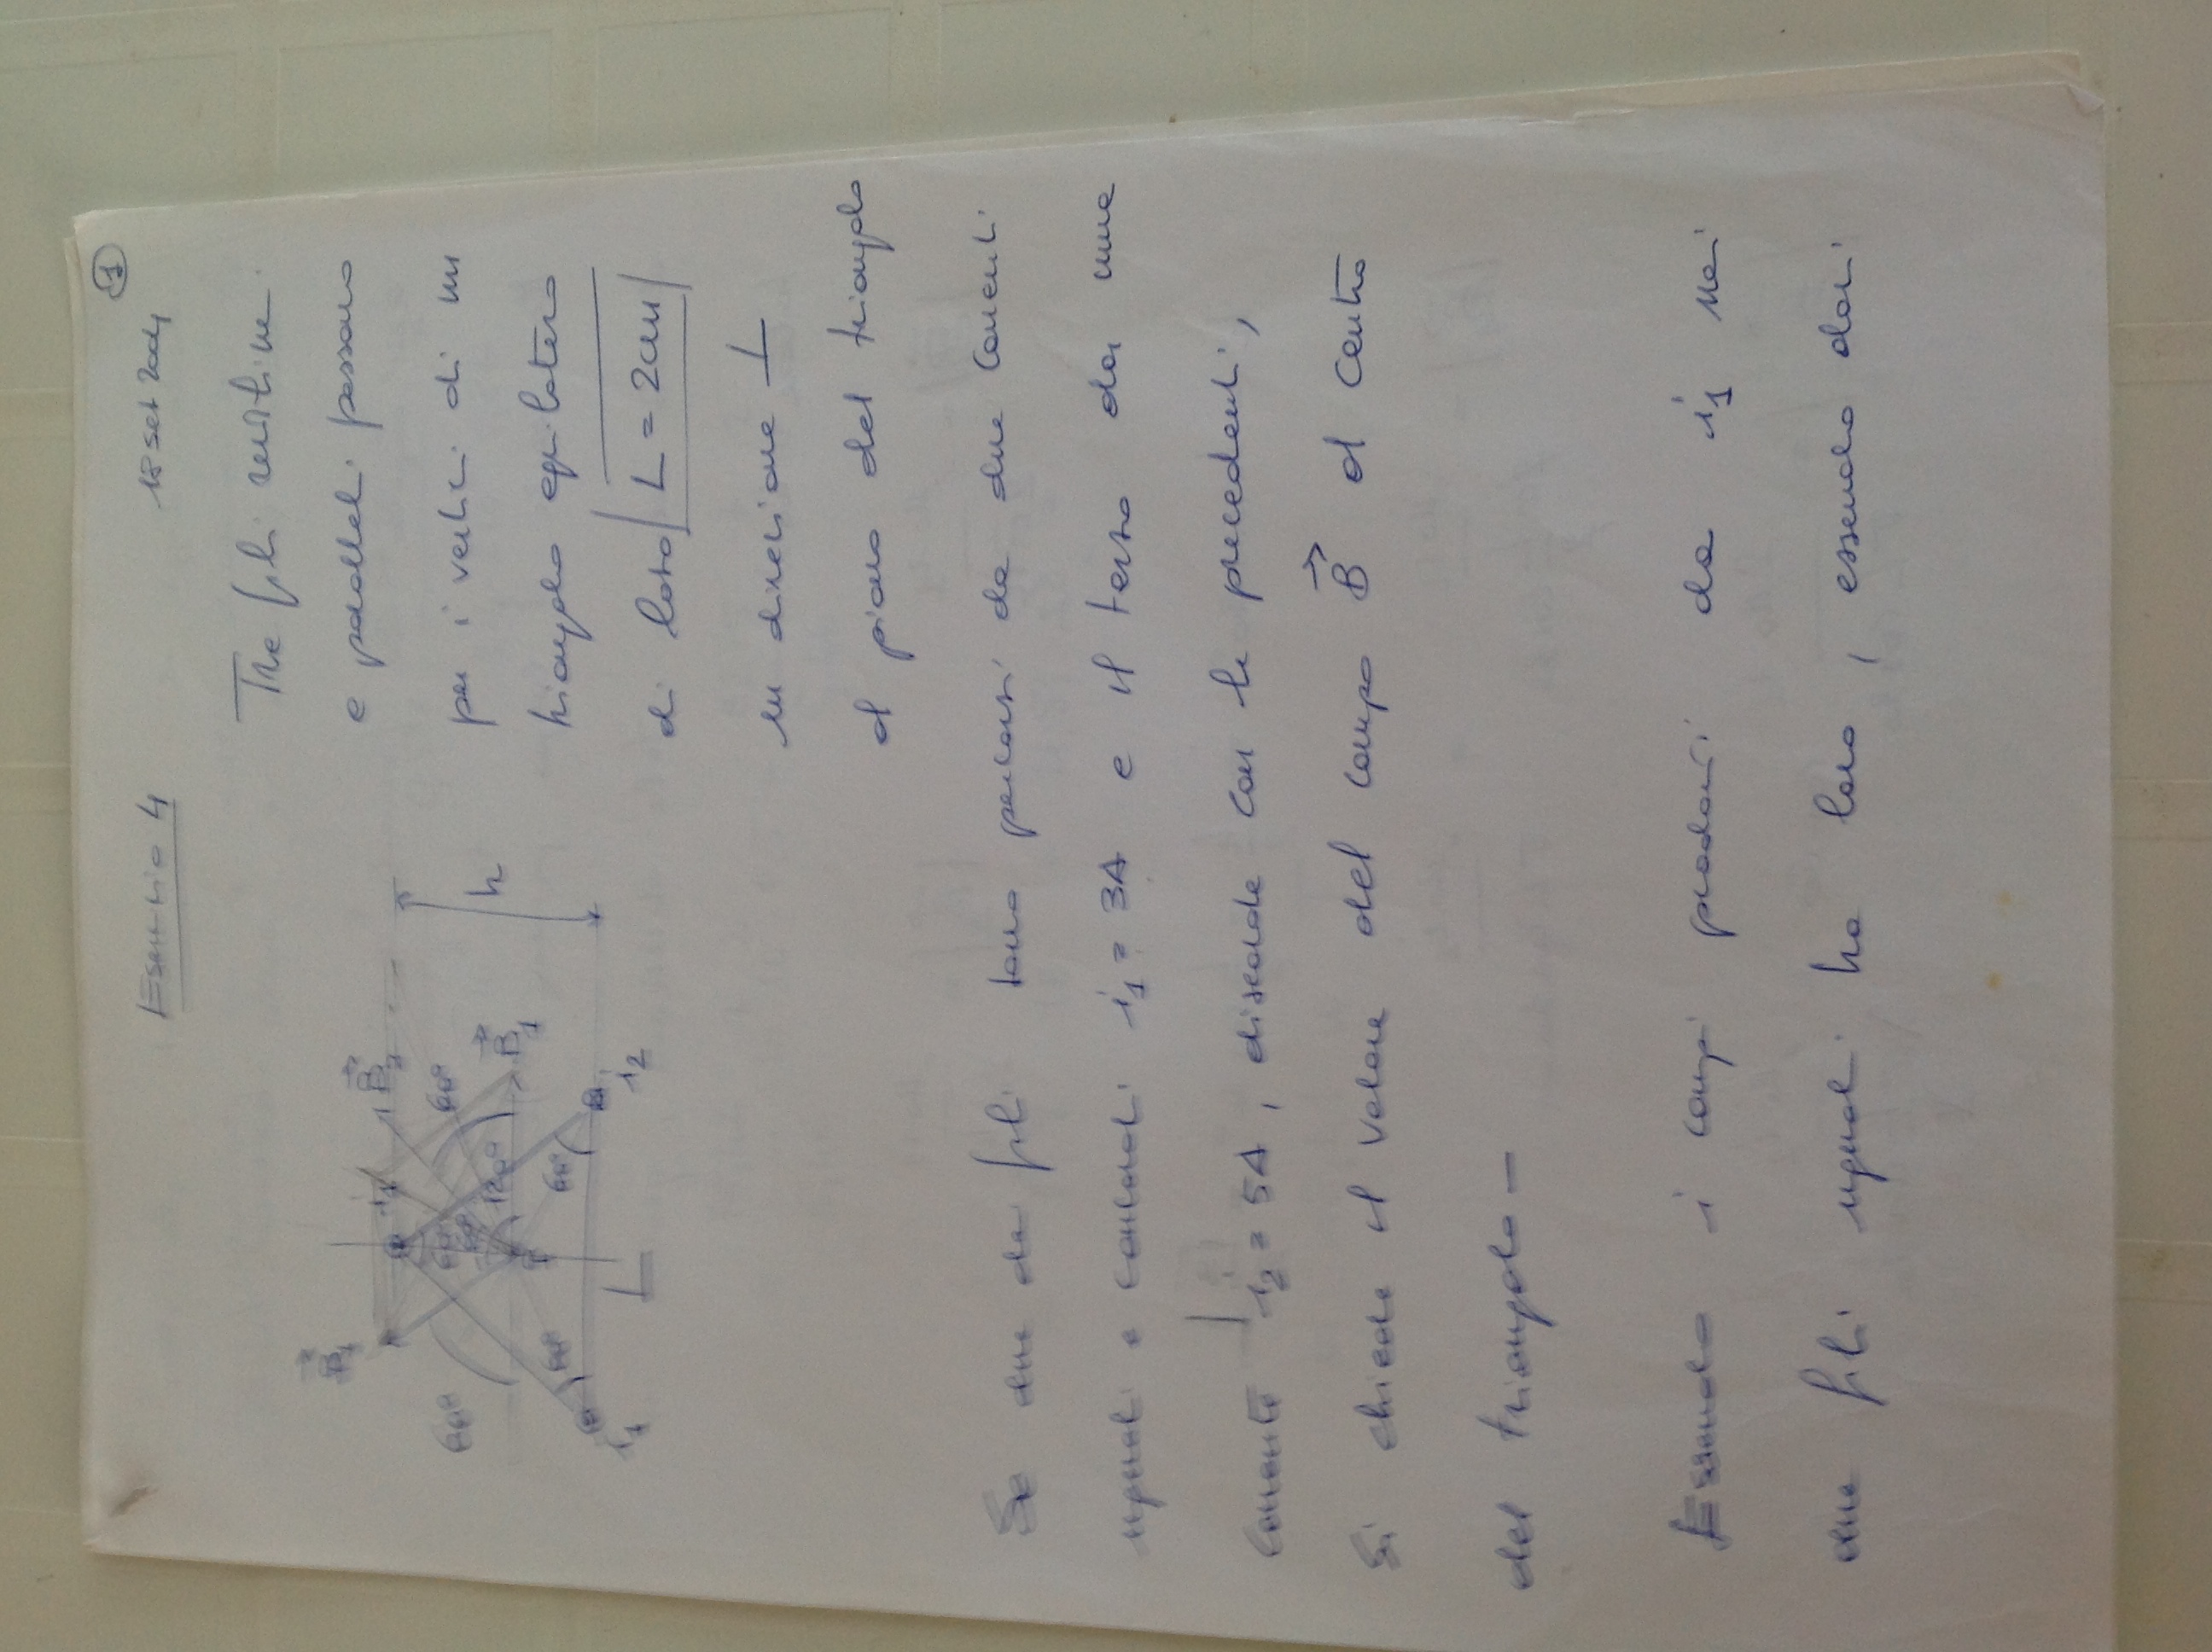 1
Esercizio 4
18 set 2004
Tre fili rettilinei
e paralleli passano
per i vertici di un
triangolo equilatero
di lato L = 2cm
in direzione ⊥
al piano del triangolo
B₁ i₁ B₂
60° 60° 60°
120° h
P B₁
60° 60°
i₁ L i₂
Se due dei fili sono percorsi da due correnti
uguali e concordi i₁ = 3A e il terzo da una
corrente i₂ = 5A, discorde con le precedenti,
Si chiede il valore del campo B⃗ al centro
del triangolo —
Essendo i campi prodotti da i₁ nei
due fili uguali tra loro, essendo dati